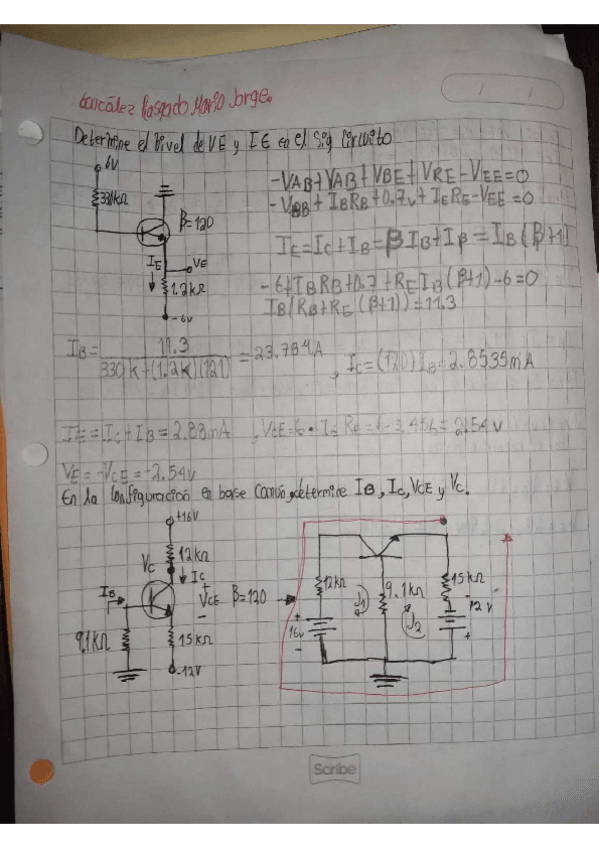 González Rasgado Mario Jorge.
Determine el nivel de VE y IE en el sig circuito
6V
330kΩ
β=120
IE
VE
1.2kΩ
-6V
-VAB+VAB+VBE+VRE-VEE=0
-VBB+IBRB+0.7v+IERE-VEE=0
IE=IC+IB=βIB+IB=IB(β+1)
-6+IBRB+0.7+REIB(β+1)-6=0
IB(RB+RE(β+1))=11.3
IB= 11.3 / 330k+(1.2k)(121) =23.78μA, IC=(120)IB=2.8535mA
IE=IC+IB=2.88mA
VE=-VCE=-2.54v
En la configuración en base común, determine IB, IC, VCE y VC.
+16V
12kΩ
VC
IC
IB
+
VCE
-
β=120
9.1kΩ
15kΩ
-12V
12kΩ
9.1kΩ
15kΩ
J1
J2
+
16v
-
-
12v
+
Scribe